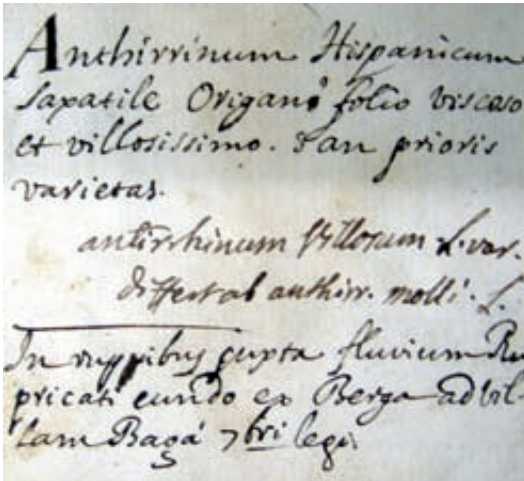 Anthirrinum Hispanicum
saxatile Origani folio viscoso
et villosissimo. an prioris
varietas.
antirrhinum villosum L. var.
differt ab anthirr. molli. L.
In ruppibus juxta fluvium
pricati eundo ex Berga ad vil-
lam Bagá 7bri legi